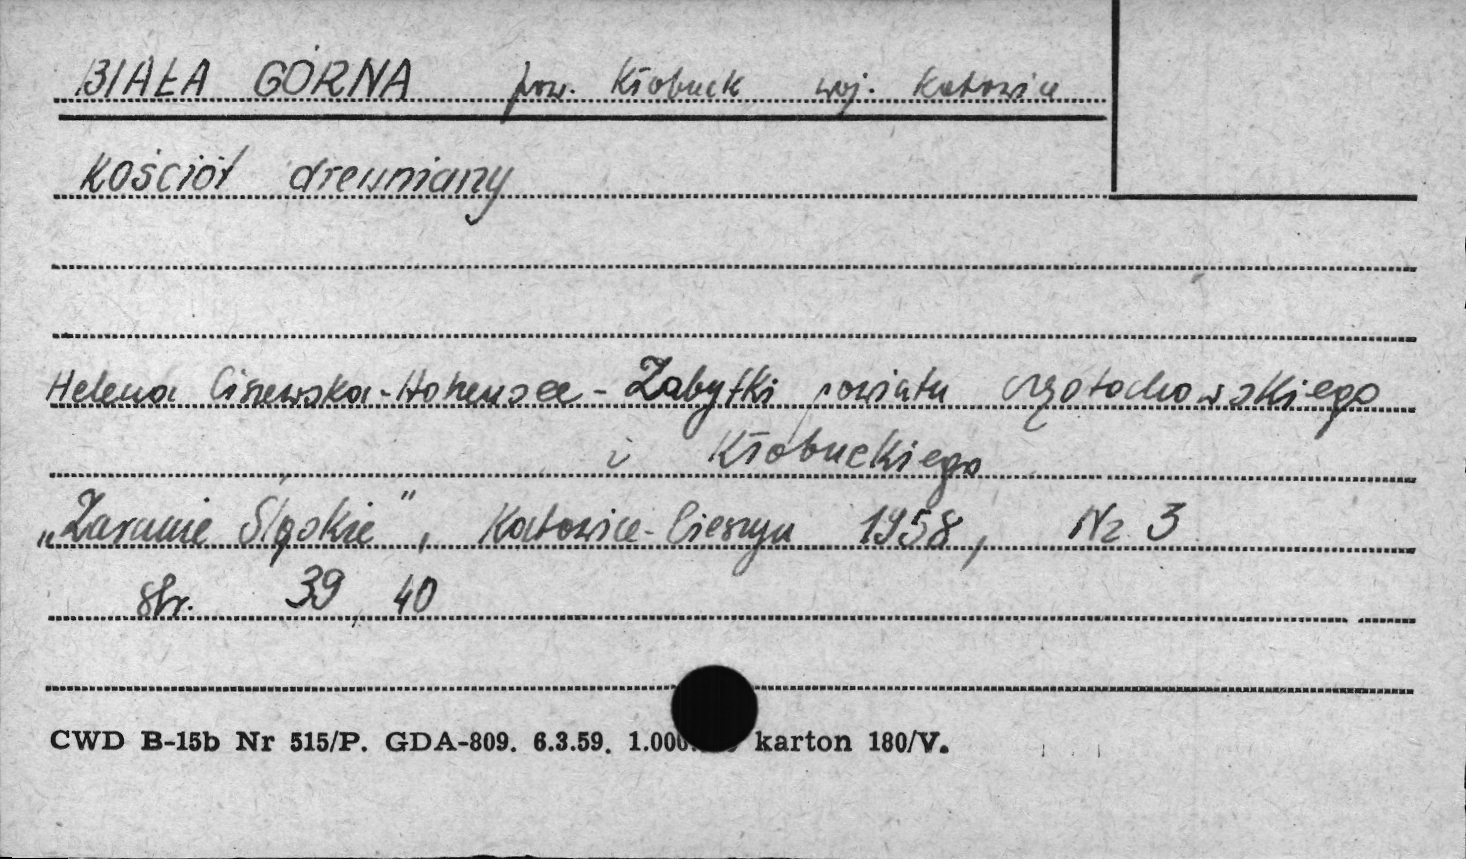 BIAŁA GÓRNA pow. Kłobuck woj. Katowice
Kościół drewniany
Helena Ciszewska-Hohensee - Zabytki powiatu częstochowskiego
i Kłobuckiego
„Zaranie Śląskie", Katowice-Cieszyn 1958, Nr 3
str. 39, 40
CWD B-15b Nr 515/P. GDA-809. 6.3.59. karton 180/V.